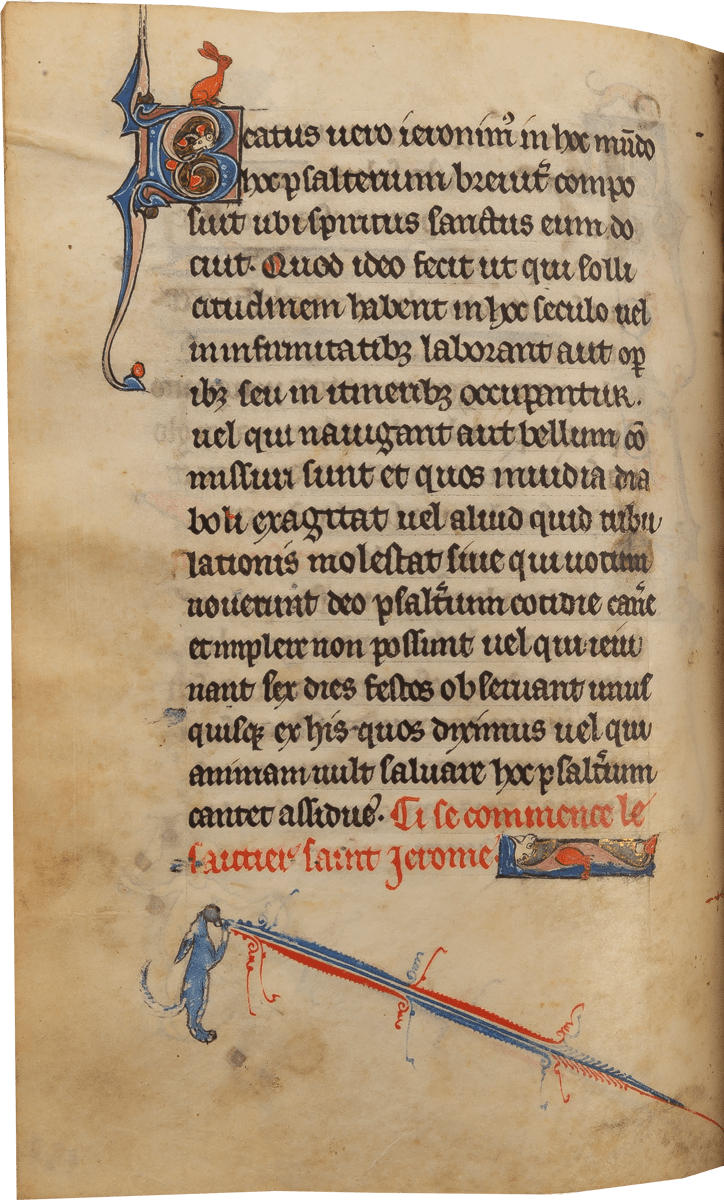 Beatus uero ieronim᾽ in hoc mūdo
hoc psalterium breuit̄ compo
suit ubi spiritus sanctus eum do
cuit. Quod ideo fecit ut qui solli
citudinem habent in hoc seculo uel
in infirmitatibꝫ laborant aut oꝑ
ibꝫ seu in itineribꝫ occupantur.
uel qui nauigant aut bellum cō
missuri sunt et quos inuidia dia
boli exagitat uel aliud quid tribu
lationis molestat siue qui uotum
uouerunt deo psalt̄ium cotidie cañe
et implere non possunt uel qui ieiu
nant sex dies festos obseruant unus
quisqꝫ ex his quos diximus uel qui
animam uult saluare hoc psalt̄ium
cantet assidue. Ci se commence le
sautier saint Jerome